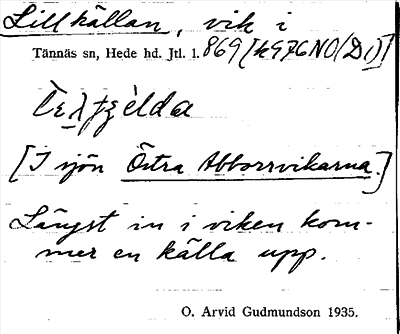 Lillkällan, vik i
Tännäs sn, Hede hd. Jtl. l. 869 [h976NO(D1)]
[I sjön Östra Abborrvikarna.]
Längst in i viken kom-
mer en källa upp.
O. Arvid Gudmundson 1935.